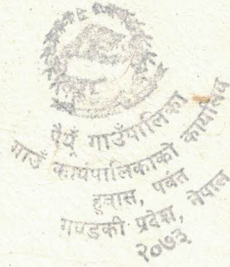 पैयूँ गाउँपालिका
गाउँ कार्यपालिकाको कार्यालय
हुवास, पर्वत
गण्डकी प्रदेश, नेपाल
२०७३